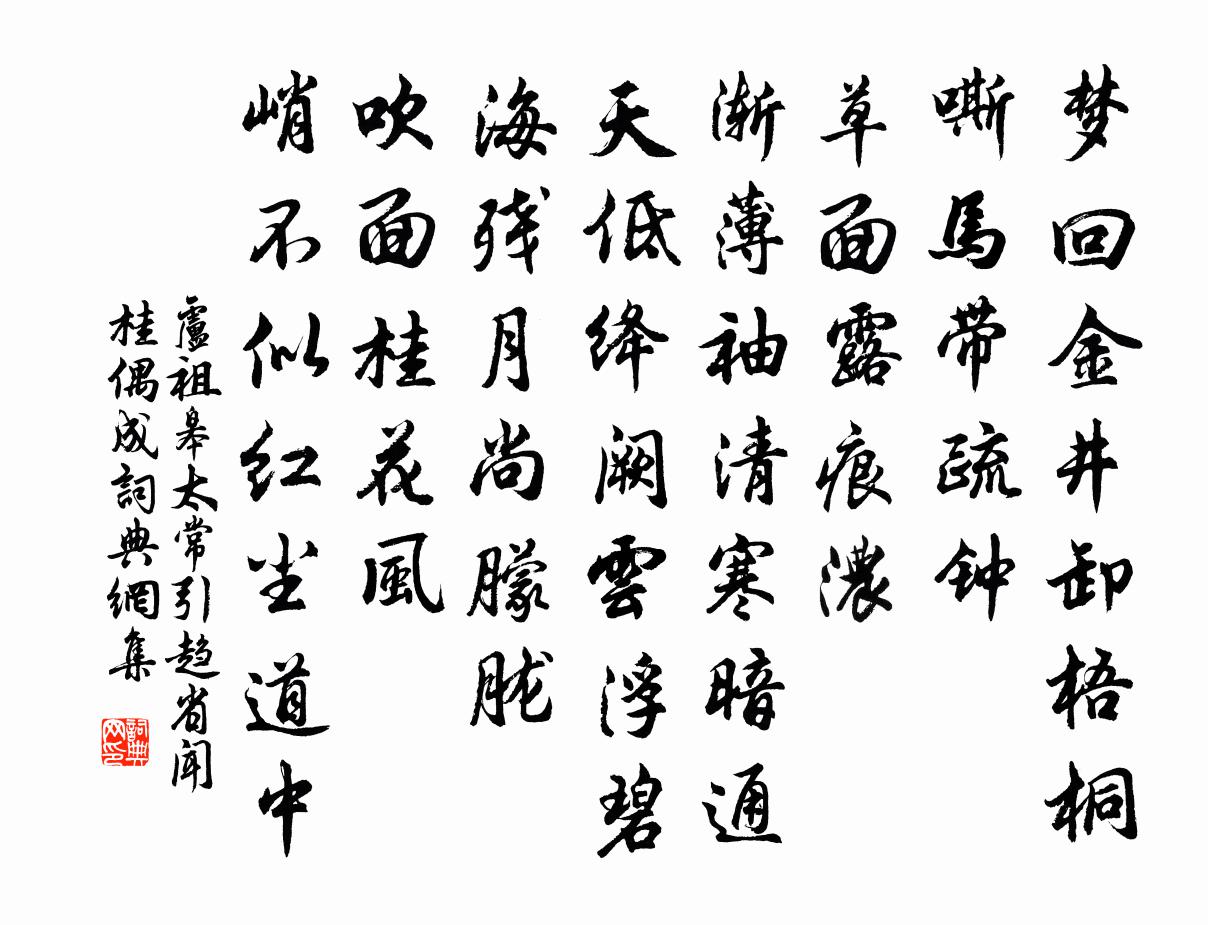 梦回金井卸梧桐
嘶馬带疏钟
草面露痕濃
渐薄袖清寒暗通
天低绛阙雲浮碧
海残月尚朦胧
吹面桂花風
峭不似红尘道中
盧祖皋太常引趋省闻
桂偶成詞典網集
詞典
网印